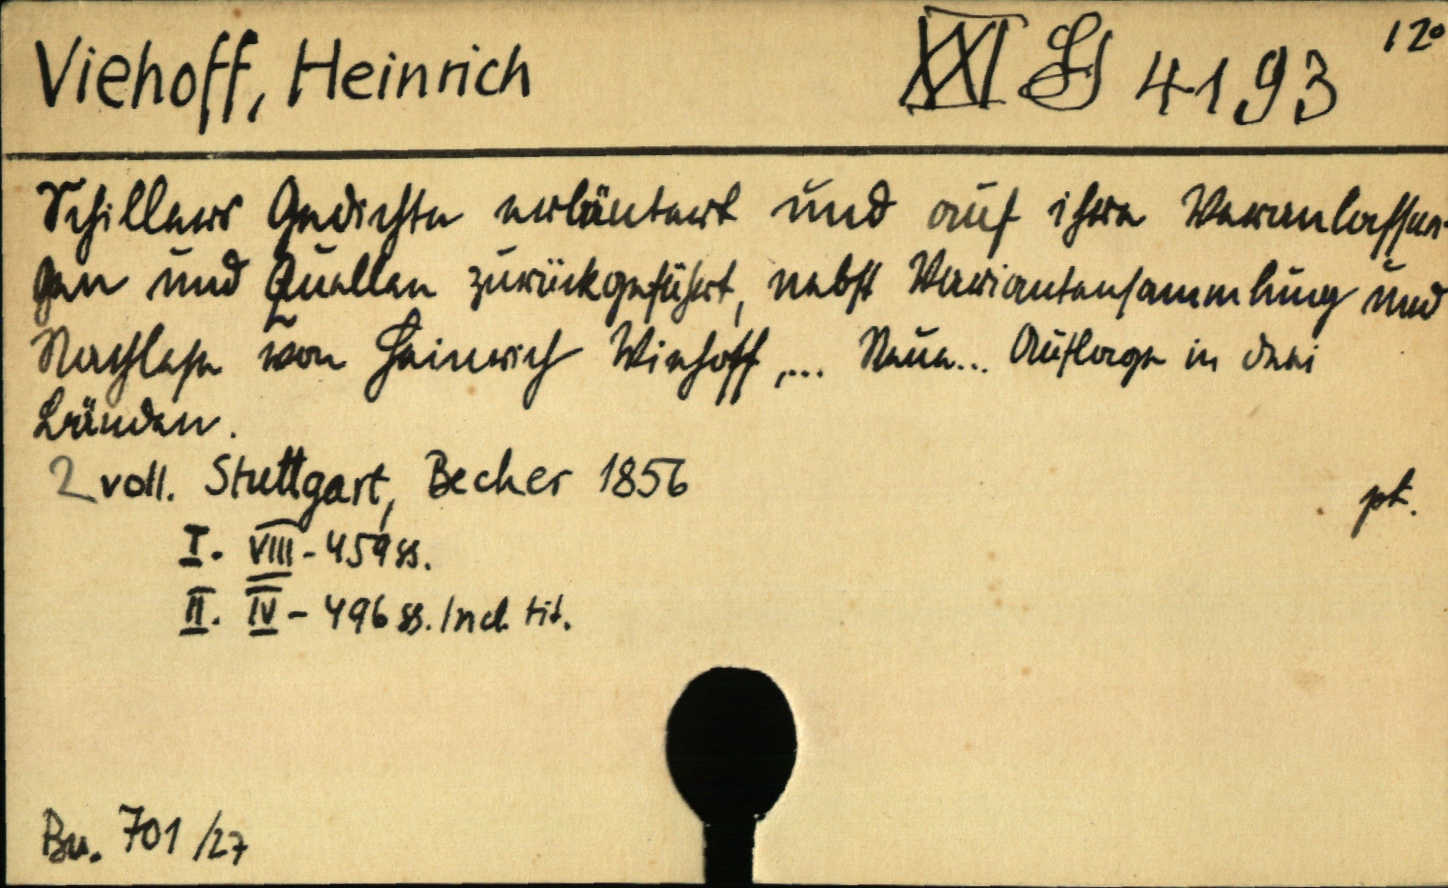 Viehoff, Heinrich
XXI H 4193 12°
Schillers Gedichte erläutert und auf ihre Veranlassun-
gen und Quellen zurückgeführt, nebst Variantensammlung und
Nachlese von Heinrich Viehoff,... Neue... Auflage in drei
Bänden.
2 voll. Stuttgart, Becher 1856
pt.
I. VIII - 459 ss.
II. IV - 496 ss. Incl. tit.
Bu. 701/27